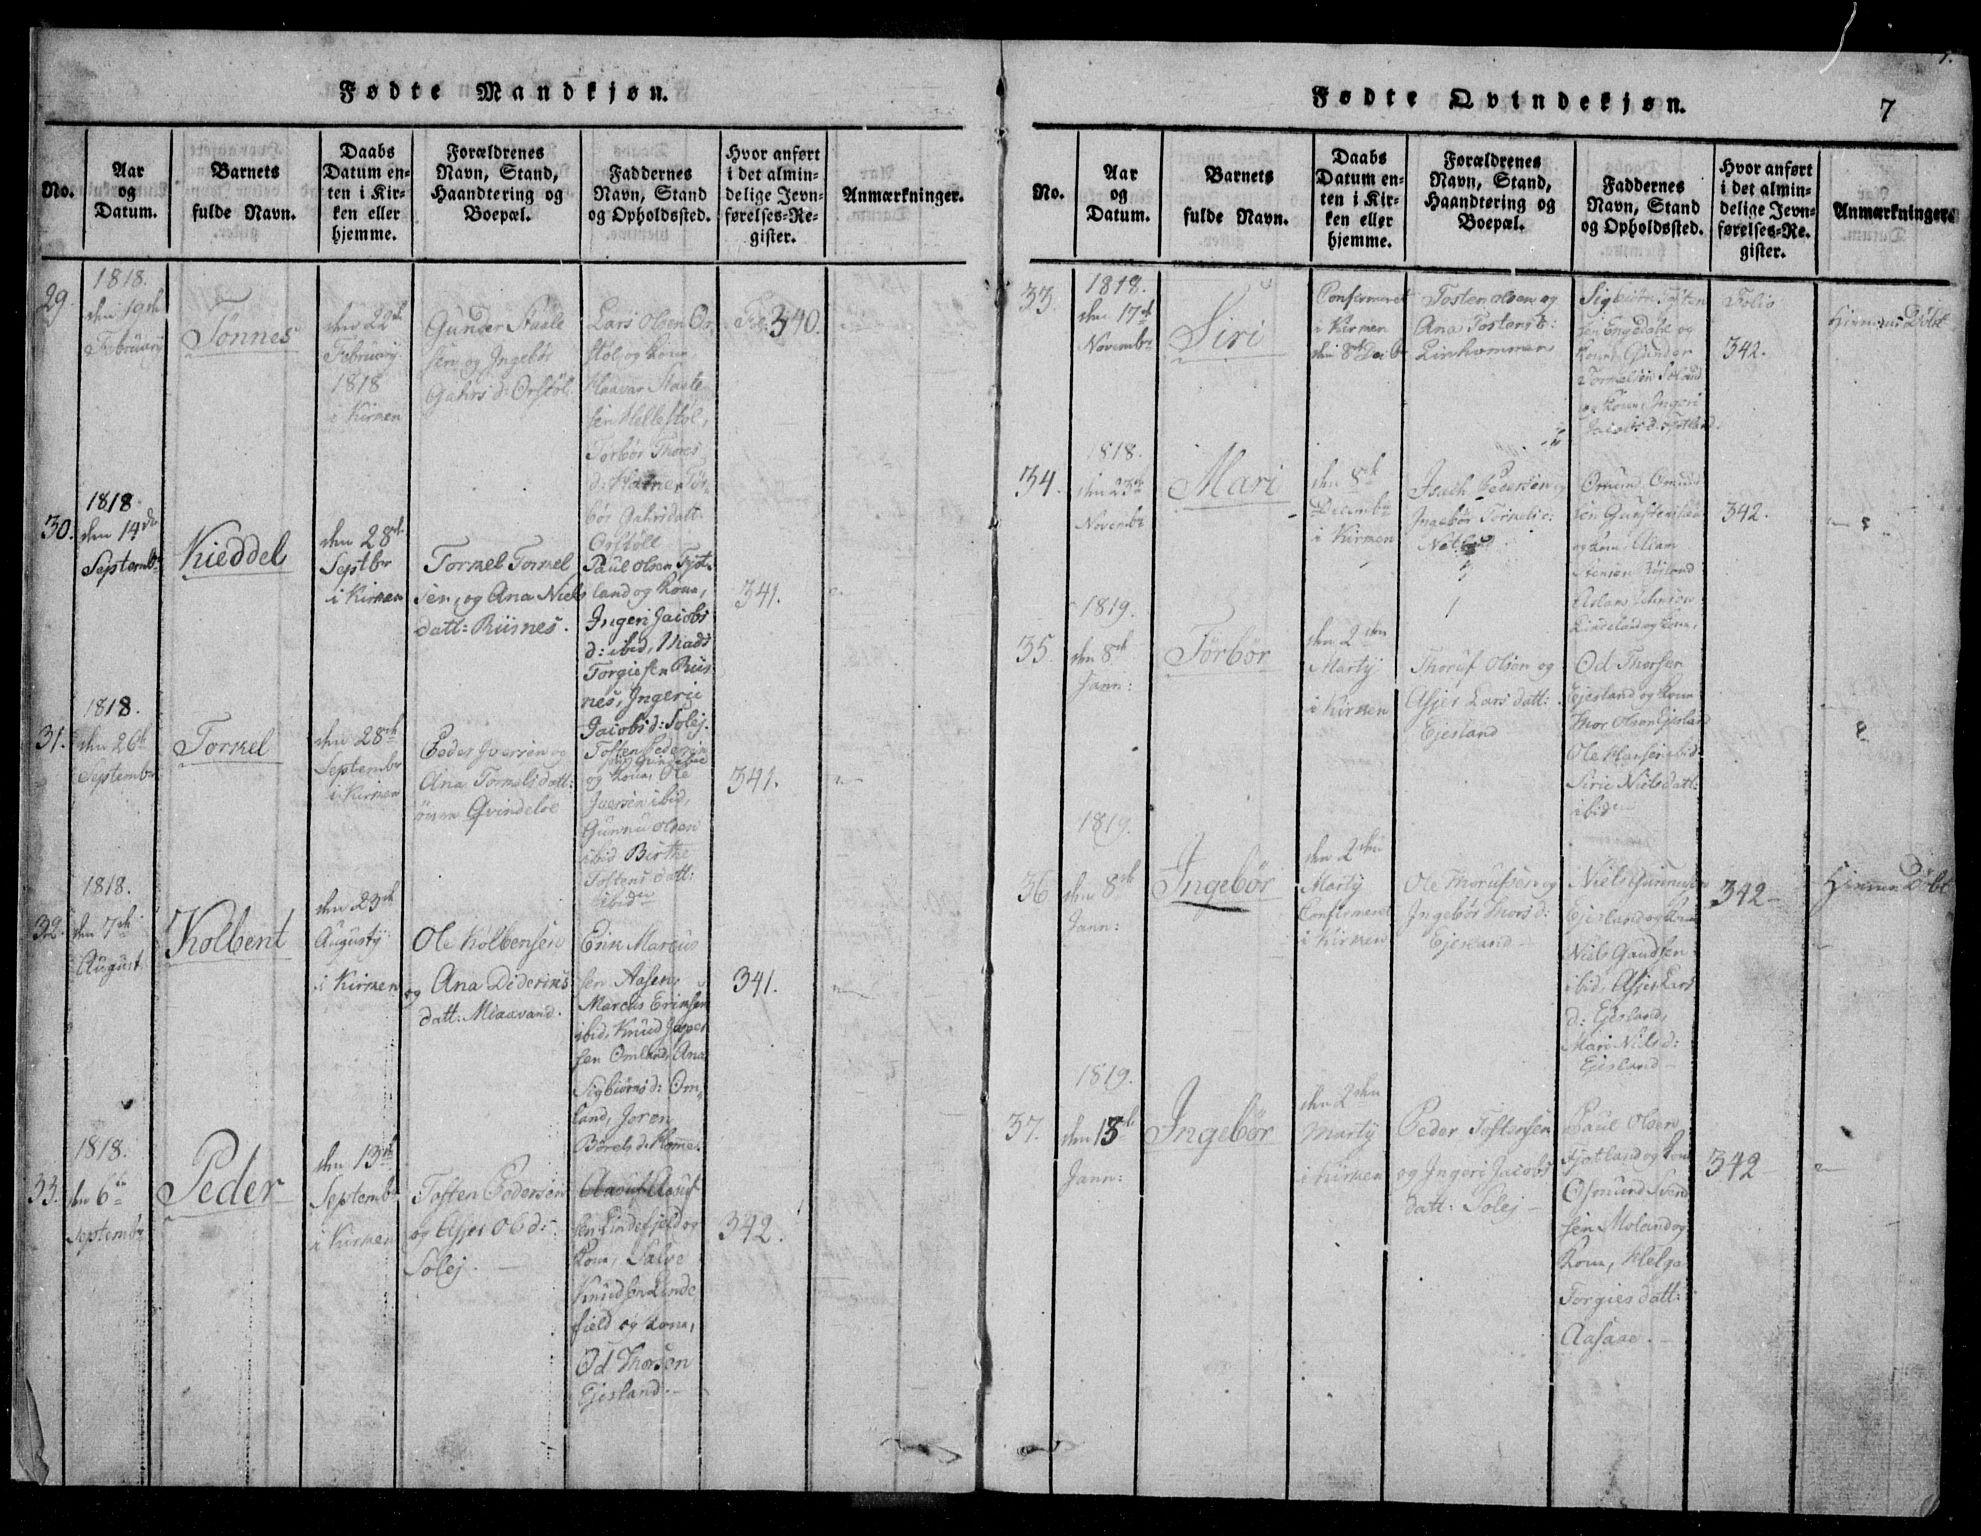 Fødte Mandkjøn.
No.
Aar
og
Datum.
Barnets
fulde Navn.
Daabs
Datum en-
ten i Kir-
ken eller
hjemme.
Forældrenes
Navn, Stand,
Haandtering og
Boepæl.
Faddernes
Navn, Stand
og Opholdssted.
Hvor anført
i det almin-
delige Jevn-
førelses-Re-
gister.
Anmærkninger.
29
1818.
den
Februarij
Tønnes
den 22de
Februarij
1818
i Kirken
Gunder Staale
sen og Ingebør
d: Orstøl
Lars Olsen Or
støl og Kona
Haavar Staale
sen Hellestøl,
Torbør Thores
d:
bør datt:
Orstøll
340.
30.
1818.
den 14de
Septembr
Kieddel
den 28de
Septbr
i Kirken
Tormel Tormel
sen, og Ana Niels
datt: Risnes.
Paul Olsen Fjot-
land og Kona,
Ingeri Jacobs
d: ibid, Mads
Torgiesen Riis
nes, Ingerie
Jacobs d: Solej.
341.
31.
1818.
den 26de
Septembr
Tormel
den 28de
Septembr
i Kirken
Peder Iversen og
Ana Tormels datt:
Qvindeloe
Tosten Pedersen
Qvindeloe
og Kona, Ole
Iversen ibid,
Gunnu Olsen
ibid Birthe
Tostens datt:
ibid
341.
32.
1818.
den 7de
August
Kolbent
den 23de
Augusty
i Kirken
Ole Kolbensen
og Ana Dideriks
datt: Miaavand.
Erik Marcus
sen Aasen,
Marcus Eriksen
ibid, Knud Japer
sen Omland, Ana
Sigbiørns d: Om-
land, Joren
Børels d: Homme.
341.
33.
1818.
den 6te
Septembr
Peder
den 13de
Septembr
i Kirken
Tosten Pedersen
og Asjer Ols d:
Solej.
Aasuf
sen Lindefjeld og
Kona, Salve
Knudsen Linde
field og Kona,
Od Thorsen
Ejesland.
342.
Fødte Qvindekjøn.
7
No.
Aar
og
Datum.
Barnets
fulde Navn.
Daabs
Datum en-
ten i Kir-
ken eller
hjemme.
Forældrenes
Navn, Stand,
Haandtering og
Boepæl.
Faddernes
Navn, Stand
og Opholdssted.
Hvor anført
i det almin-
delige Jevn-
førelses-Re-
gister.
Anmærkninger.
33.
1818.
den 17de
Novembr
Siri
Confirmeret
i Kirken
den 8de
Tosten Olsen og
Ana
Sigbiørn Tosten
sen Engedahl og
Kona, Gunder
og Kona, Ingeri
Jacobs d: Fjotland.
Folio
342.
Hiemme Døbt
34.
1818.
den 23de
Novembr
Mari
den 8de
Decembr
i Kirken
Isach Pedersen og
Ingebør
Netland
Omund
sen
og Kona, Adam
342.
35
1819.
den 8de
Jann:
Torbør
den 2den
Marty
i Kirken
Thoruf Olsen og
Asjer Lars datt:
Ejesland
Od Thorsen
Ejesland og Kona
Thor Olsen Ejesland
Ole Hansen ibid:
Sirie Niels datt:
ibid
36
1819.
den 8de
Jann:
Ingebør
den 2den
Marty
Confirmeret
i Kirken
Ole Thorufsen og
Ingebør Thors d:
Ejesland
Niels Gunnusen
Ejesland og Kona
Niels
ibid, Asjer Lars
d: Ejesland,
Mari Niels d:
Ejesland
342
Hiemme Døbt
37.
1819.
den 13de
Jann:
Ingebør
den 2den
Marty
i Kirken
Peder Tostensen
og Ingeri Jacobs
datt: Solej
Paul Olsen
Fjotland og Kona
Osmund Svend
sen Moland og
Kona, Helga
Torgies datt:
Aasaae.
342